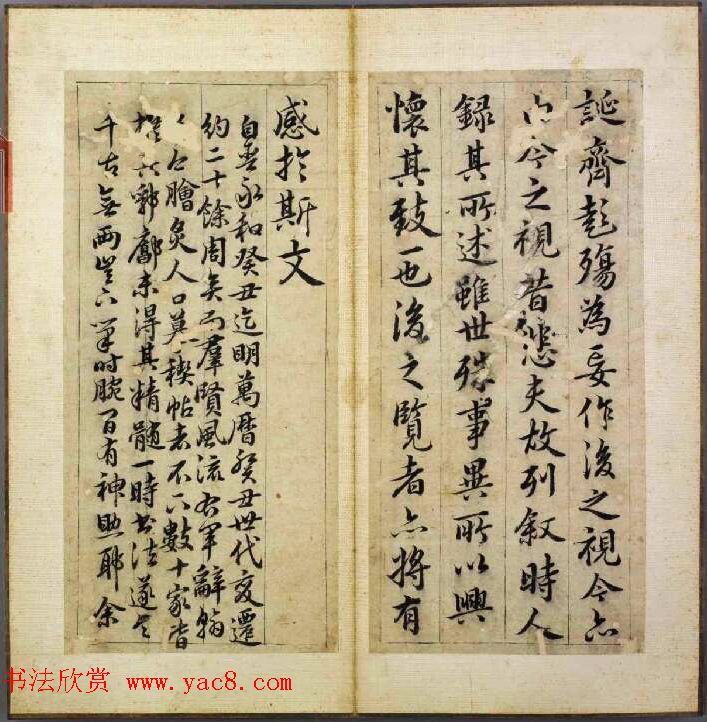 誕齊彭殤為妄作後之視今亦
由今之視昔悲夫故列叙時人
錄其所述雖世殊事異所以興
懷其致一也後之覽者亦將有
感於斯文
自晉永和癸丑迄明萬曆癸丑世代变遷
約二十餘周矣而羣賢風流右軍辭翰
膾炙人口禊帖者不下數十家皆
郛廓未得其精髓一時書法遂
千古無兩豈下筆时腕有神助耶余
书法欣赏 www.yac8.com